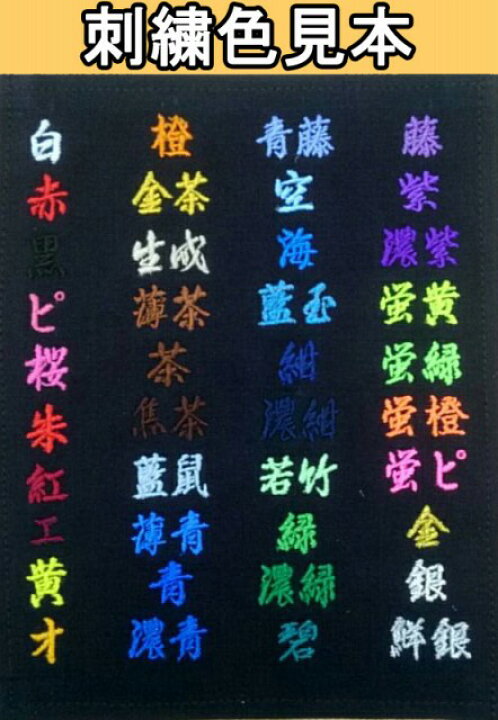 刺繍色見本
白
赤
黒
ピ
桜
朱
紅
エ
黄
オ
橙
金茶
生成
薄茶
茶
焦茶
藍鼠
薄青
青
濃青
青藤
空
海
藍玉
紺
濃紺
若竹
緑
濃緑
碧
藤
紫
濃紫
蛍黄
蛍緑
蛍橙
蛍ピ
金
銀
鮮銀